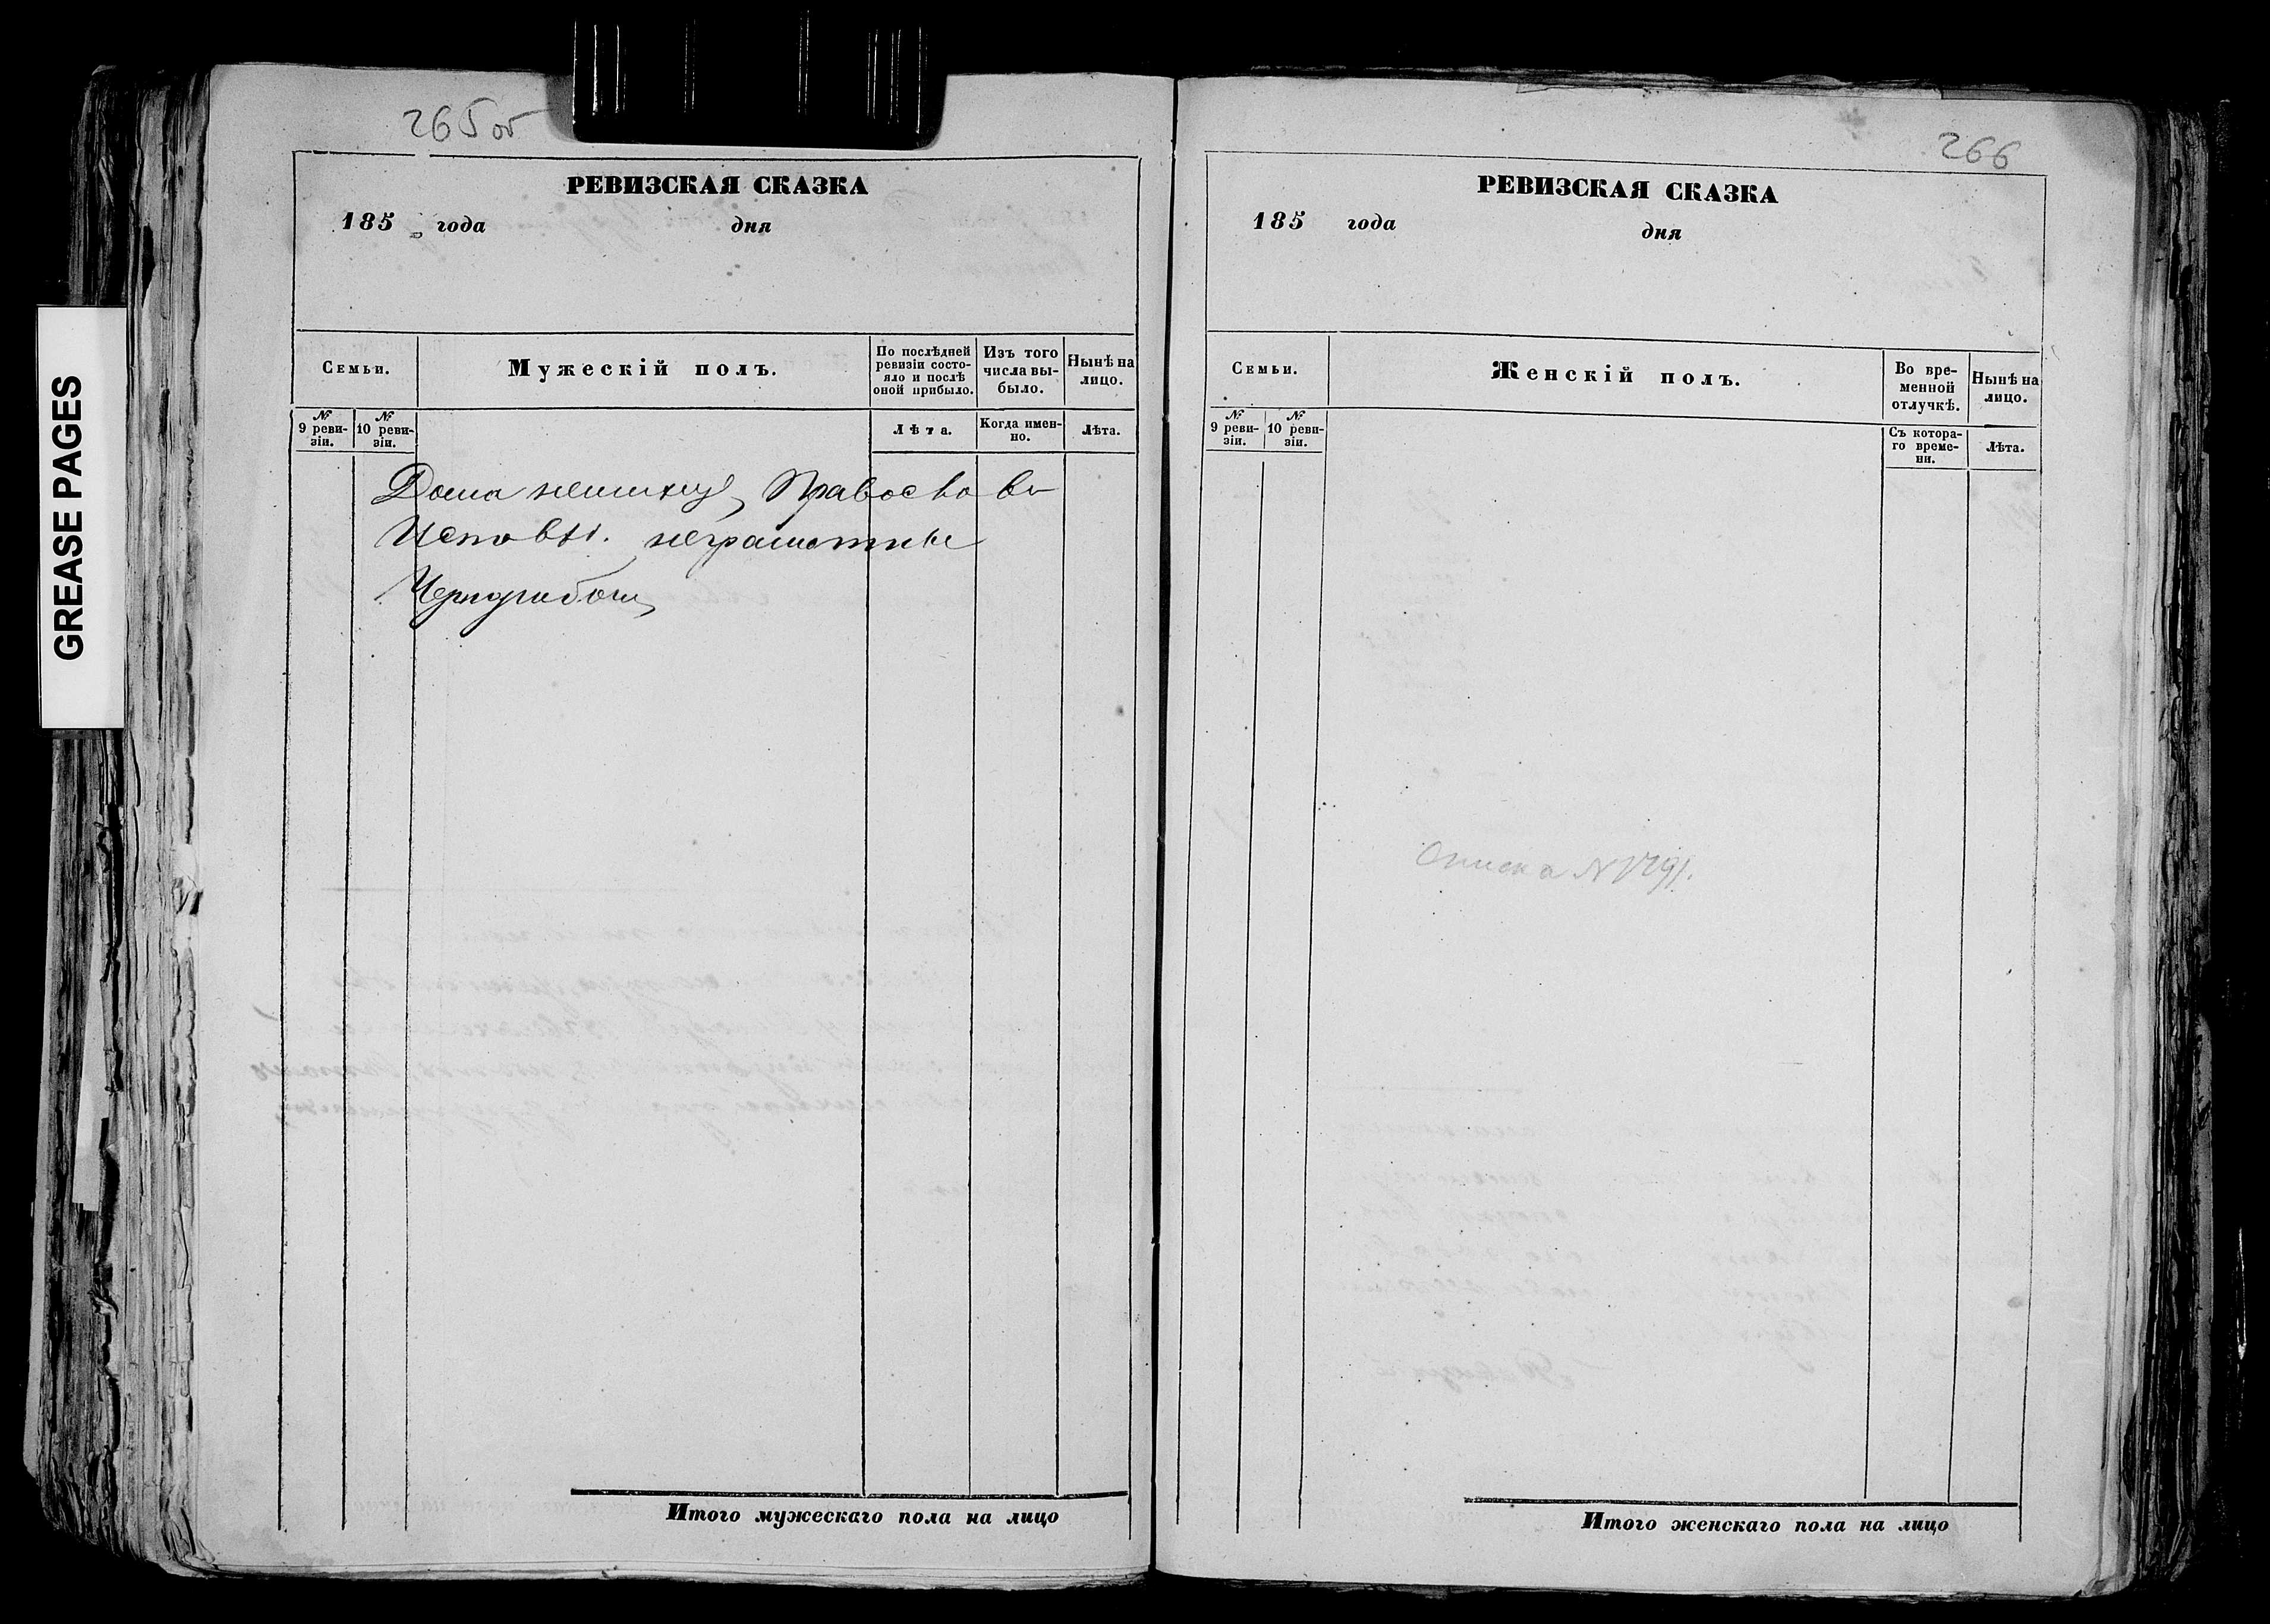 GREASE PAGES
265 об
РЕВИЗСКАЯ СКАЗКА
185 года дня
Семьи.
Мужескій полъ.
По послѣдней ревизіи состояло и послѣ оной прибыло.
Изъ того числа выбыло.
Нынѣ на лицо.
№ 9 ревизіи.
№ 10 ревизіи.
Лѣта.
Когда именно.
Лѣта.
Православ
неграмотные
Итого мужескаго пола на лицо
266
РЕВИЗСКАЯ СКАЗКА
185 года дня
Семьи.
Женскій полъ.
Во временной отлучкѣ.
Нынѣ на лицо.
№ 9 ревизіи.
№ 10 ревизіи.
Съ котораго времени.
Лѣта.
Итого женскаго пола на лицо